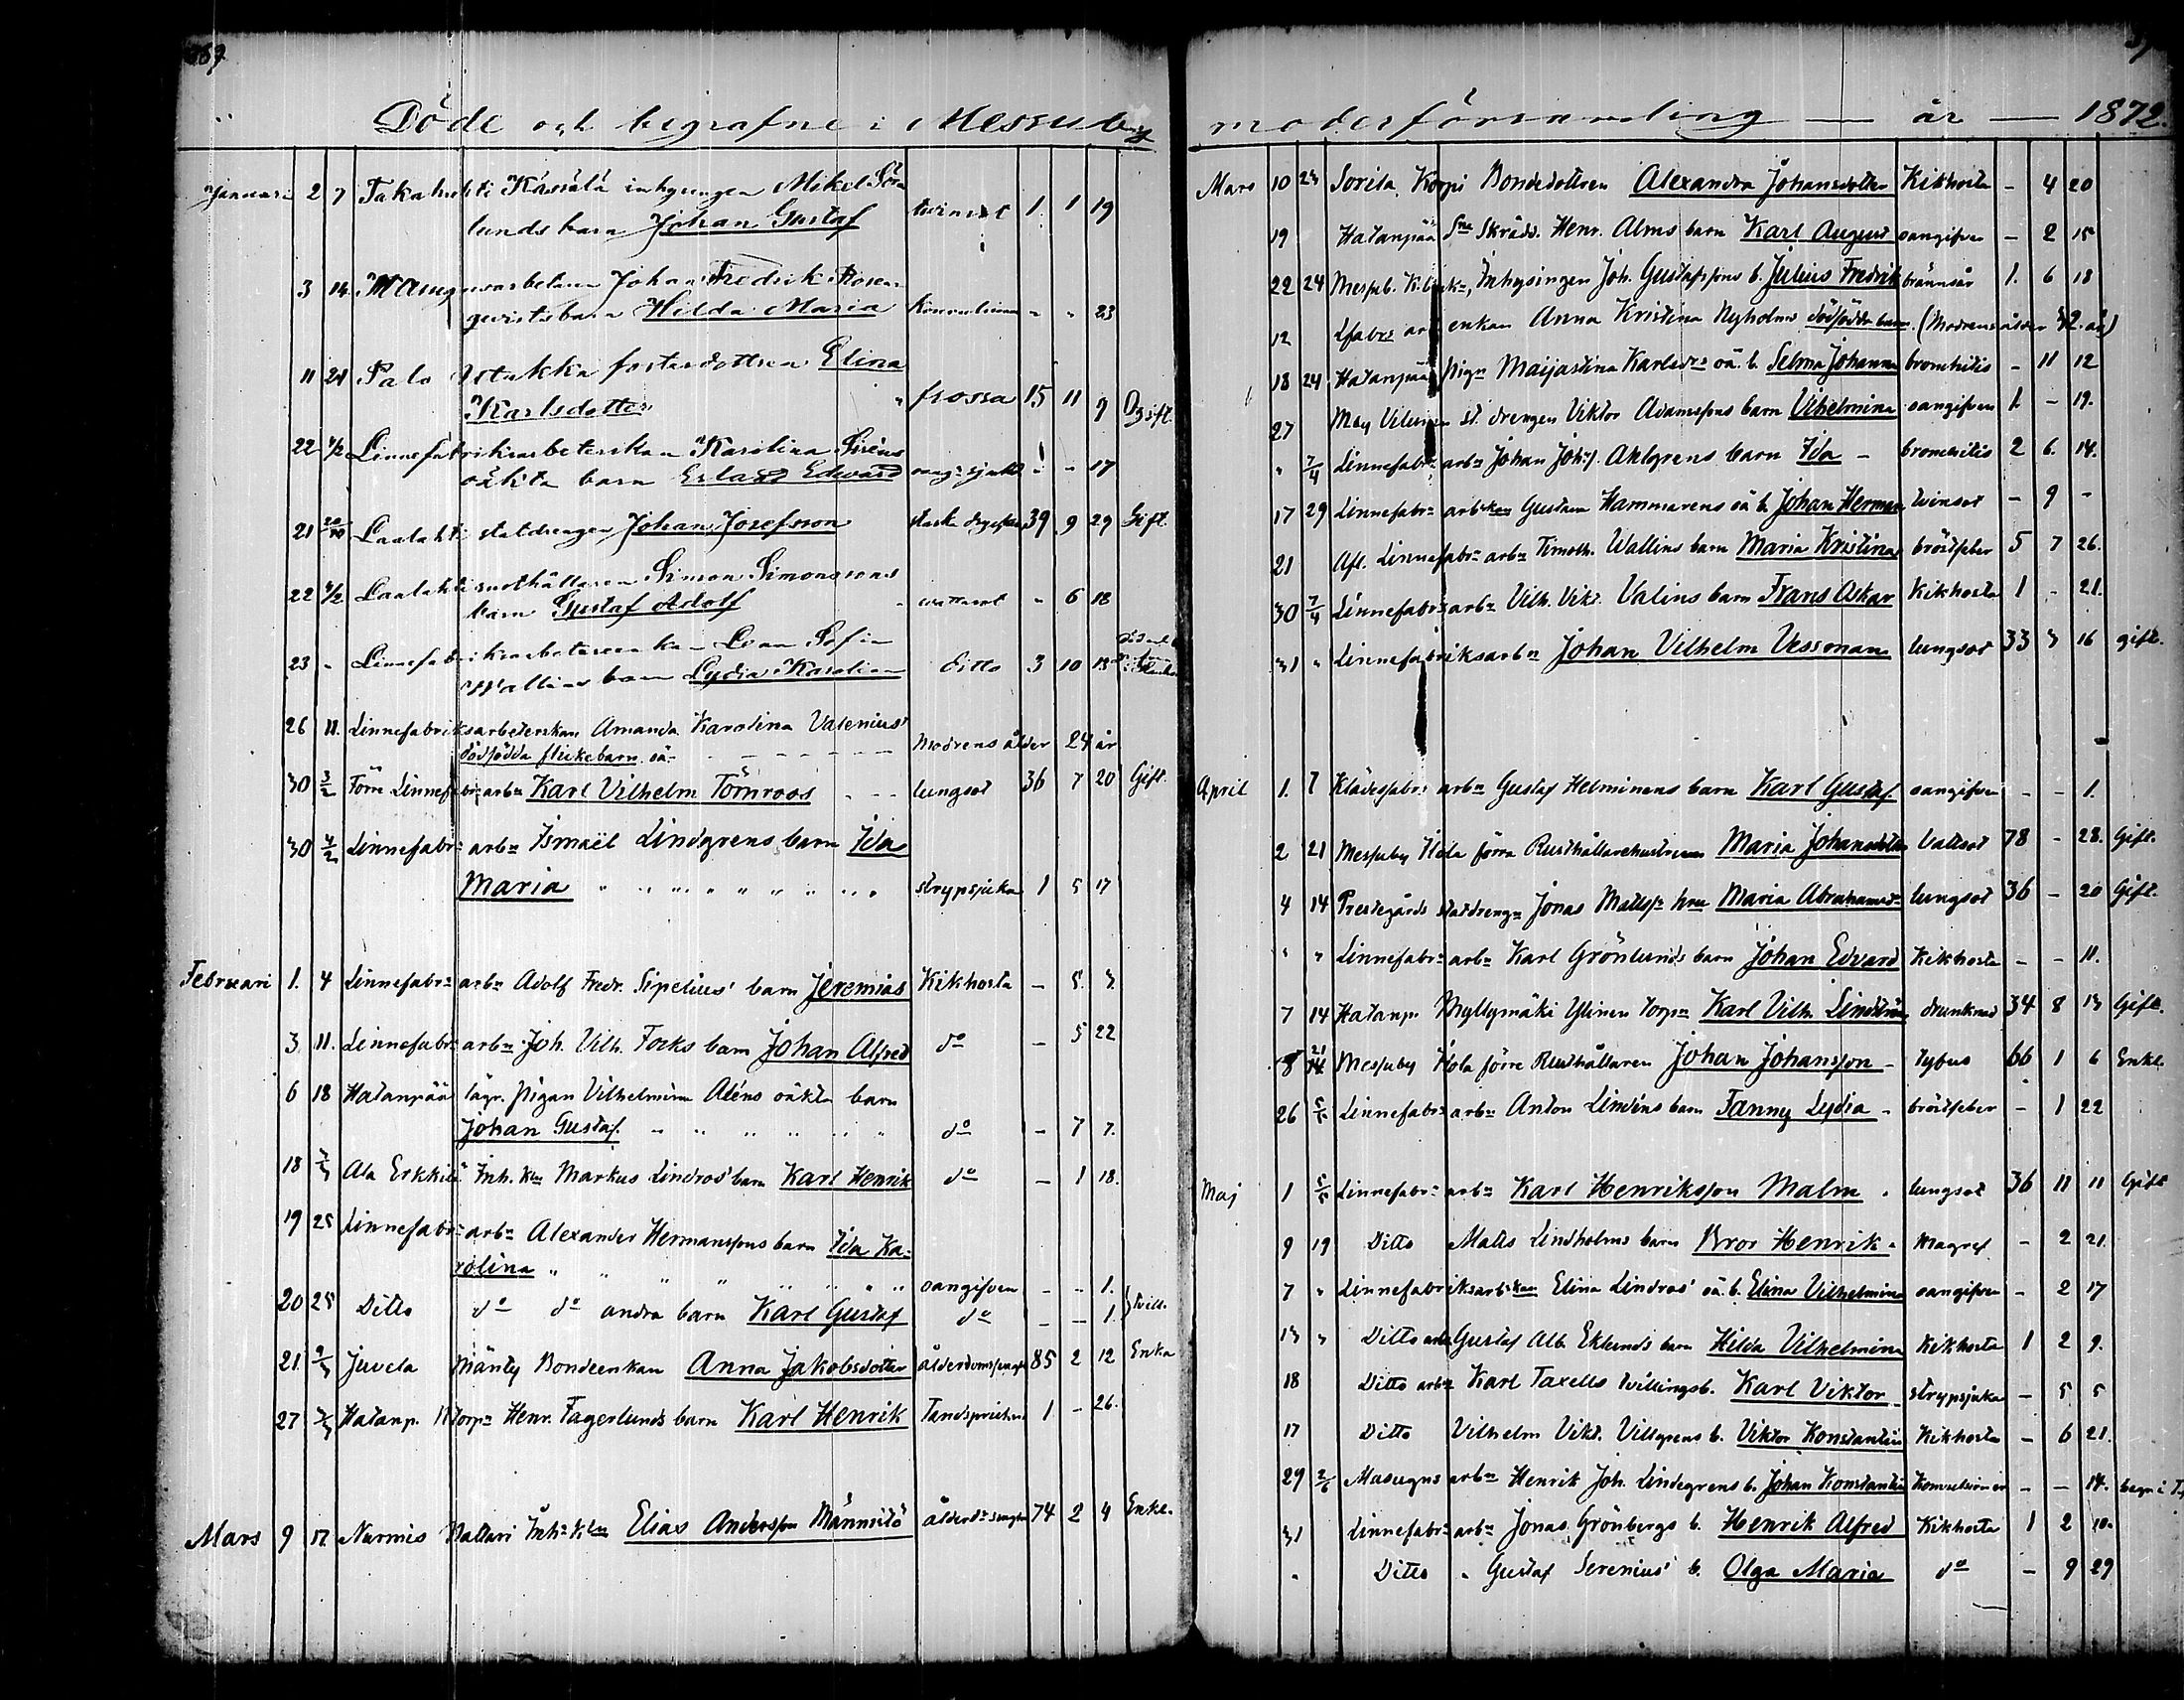 Döde och begrafne i Messuby
Januari 2 7 Takahuhti Kässälä inhysingen Mikel Söder
lunds barn Johan Gustaf twinsot 1 1 19
3 14 Masugnsarbetaren Johan Fredrik Rosen
qwists barn Hilda Maria - - 23
11 21 Palo fosterdottren Elina
Karlsdotter frossa 15 11 9 Ogift
22 4/2 Linnefabriksarbeterskan Karolina Siréns
oäkta barn Edward - - 17
21 Laalahti statdrengen Johan Josefsson 39 9 29 Gift
22 4/2 Laalahti Simon Simonssons
barn Gustaf Adolf wattusot - 6 18
23 - Linnefabriksarbeterskan Lena Sofia
Wallins barn Lydia Karolina ditto 3 10 13
26 11. Linnefabriksarbeterskan Amanda Karolina Valenius'
dödfödda flickebarn oä. - Modrens ålder 24 år
30 3/2 Förre Linnefabr: arb:n Karl Vilhelm Törnroos - - - lungsot 36 7 20 Gift.
30 4/2 Linnefabr: arb:n Ismaël Lindgrens barn Ida
Maria strypsjuka 1 5 17
Februari 1. 4 Linnefabr:s arb:n Adolf Fredr. Sipelius' barn Jeremias Kikhosta - 5. 3.
3 11. Linnefabr: arb:n Joh. Vilh. Forks barn Johan Alfred d:o - 5 22
6 18 Hatanpää lägr. pigan Vilhelmina Aléns oäkta barn
Johan Gustaf. d:o - 7 7.
18 3/3 Ala Erkkilä Inh. Markus Lindros' barn Karl Henrik d:o - 1 18.
19 25 Linnefabr: arb:n Alexander Hermanssons barn Ida Ka-
rolina oangifven - - 1.
20 25 Ditto d:o d:o andra barn Karl Gustaf d:o - - 1. } tvill.
21. 9/3 Juvela Mänty Bondeenkan Anna Jakobsdotter 85 2 12 Enka
27 3/3 Hatanp. torp:n Henr. Fagerlunds barn Karl Henrik 1 - 26.
Mars 9 17 Nurmis Elias Andersson 74 2 4 Enkl.
moderförsamling — år — 1872.
Mars 10 24 Sorila Korpi Bondedottren Alexandra Johansdotter Kikhosta - 4 20
19 Hatanpää Skrädd. Henr. Alms barn Karl August oangifven - 2 15
22 24 Messub. Inhysingen Joh. Gustafssons b. Julius Fredrik brännsår 1. 6 18
12 enkan Anna Kristina Nyholms dödfödda barn. (Modrens ålder 32 år)
18 24 Hatanpää pigan Maijastina Karlsd:rs oä. b. Selma Johanna bronchitis - 11 12
27 st. drengen Viktor Adamssons barn Vilhelmina oangifven 1. - 19.
" 7/4 Linnefabr: arb:n Johan Joh:s Ahlgrens barn Ida - bronchitis 2 6. 14.
17 29 Linnefabr: arb:skan Gustava Hammarens oä b. Johan Herman tvinsot - 9 -
21 Afl. Linnefabr: arb:n Timoth. Wallins barn Maria Kristina bröstfeber 5 7 26.
30 7/4 Linnefabr: arb:n Vilh. Vikt. Valins barn Frans Oskar Kikhosta 1 - 21.
31 " Linnefabriksarb:n Johan Vilhelm Vessman lungsot 33 3 16 gift.
April 1. 7 Klädesfabr: arb:n Gustaf Helminens barn Karl Gustaf. oangifven - - 1.
2 21 Messuby Hola förra Rusthållarehustrun Maria Johansdotter Vattsot 78 - 28. Gift.
4 14 Prestegårds statdreng:n Jonas Matss:s hru Maria Abrahamsd:r lungsot 36 - 20 Gift.
" " Linnefabr: arb:n Karl Grönlunds barn Johan Edvard Kikhosta - - 11.
7 14 Hatanp. Myllymäki Ylinen torp:n Karl Vilh. Lindström drunknad 34 8 13 Gift.
8 21/14 Messuby Hola förre Rusthållaren Johan Johansson - tyfus 66 1 6 Enkl.
26 5/5 Linnefabr: arb:n Anton Lindéns barn Fanny Lydia - bröstfeber - 1 22
Maj 1 5/5 Linnefabr: arb:n Karl Henriksson Malm - lungsot 36 11 11 Gift
9 19 Ditto Matts Lindholms barn Bror Henrik - Magref - 2 21.
7 " Linnefabriksarb:skan Elina Lindros' oä. b. Elina Vilhelmina oangifven - 2 17
13 " Ditto arb:n Gustaf Alb. Eklunds barn Hilda Vilhelmina Kikhosta 1 2 9.
18 Ditto arb:n Karl Taxells tvillingsb. Karl Viktor - strypsjuka - 5 5
17 Ditto Vilhelm Vikt. Villgrens b. Viktor Konstantin Kikhosta - 6 21.
29 2/6 Masugns arb:n Henrik Joh. Lindegrens b. Johan Konstantin Konvulsioner - - 14. begr. i
31 Linnefabr: arb:n Jonas Grönbergs b. Henrik Alfred Kikhosta 1 2 10.
" Ditto " Gustaf Serenius' b. Olga Maria d:o - 9 29